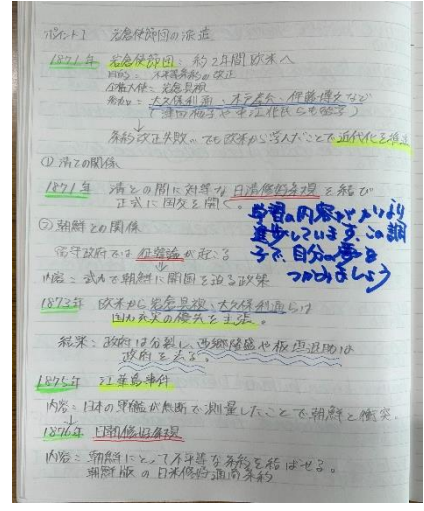 ポイント1 岩倉使節団の派遣
1871年 岩倉使節団：約2年間欧米へ
目的：不平等条約の改正
全権大使：岩倉具視
参加：大久保利通、木戸孝允、伊藤博文など
（津田梅子や中江兆民らも留学）
↓
条約改正失敗。でも欧米から学んだことで近代化を推進
① 清との関係
1871年 清との間に対等な日清修好条規を結び
正式に国交を開く。
② 朝鮮との関係
留守政府では征韓論が起こる
内容：武力で朝鮮に開国を迫る政策
1873年 欧米から岩倉具視、大久保利通らは
国力充実の優先を主張。
結果：政府は分裂し、西郷隆盛や板垣退助は
政府を去る。
1875年 江華島事件
内容：日本の軍艦が無断で測量したことで朝鮮と衝突。
↓
1876年 日朝修好条規
内容：朝鮮にとって不平等な条約を結ばせる。
朝鮮版の日米修好通商条約
学習の内容がよりより
進歩しています。この調
子で、自分の夢を
つかみましょう